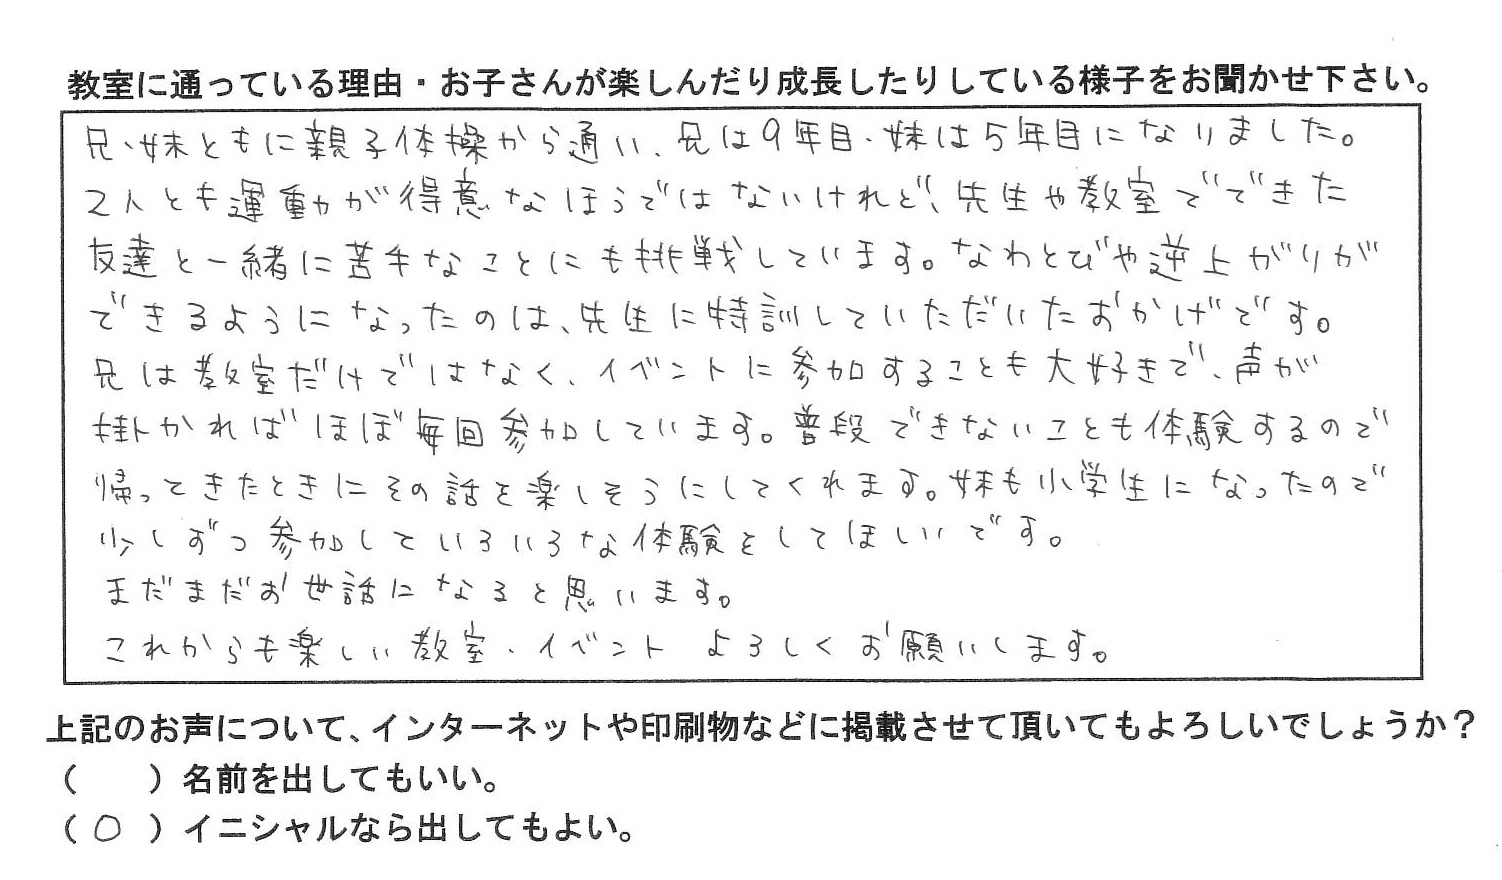 教室に通っている理由・お子さんが楽しんだり成長したりしている様子をお聞かせ下さい。
兄、妹ともに親子体操から通い、兄は9年目、妹は5年目になりました。
2人とも運動が得意なほうではないけれど、先生や教室でできた
友達と一緒に苦手なことにも挑戦しています。なわとびや逆上がりが
できるようになったのは、先生に特訓していただいたおかげです。
兄は教室だけではなく、イベントに参加することも大好きで、声が
掛かればほぼ毎回参加しています。普段できないことも体験するので
帰ってきたときにその話を楽しそうにしてくれます。妹も小学生になったので
少しずつ参加していろいろな体験をしてほしいです。
まだまだお世話になると思います。
これからも楽しい教室、イベント よろしくお願いします。
上記のお声について、インターネットや印刷物などに掲載させて頂いてもよろしいでしょうか？
（　　）名前を出してもいい。
（○）イニシャルなら出してもよい。